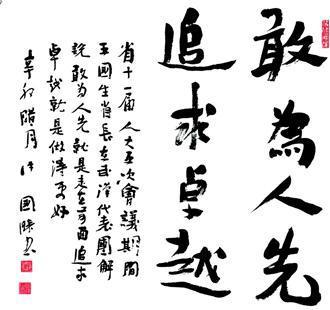 敢為人先
追求卓越
省十一屆人大五次會議期間
王國生省長在武漢代表團解
說敢為人先就是走在前面追求
卓越就是做得更好
辛卯臘月 國書